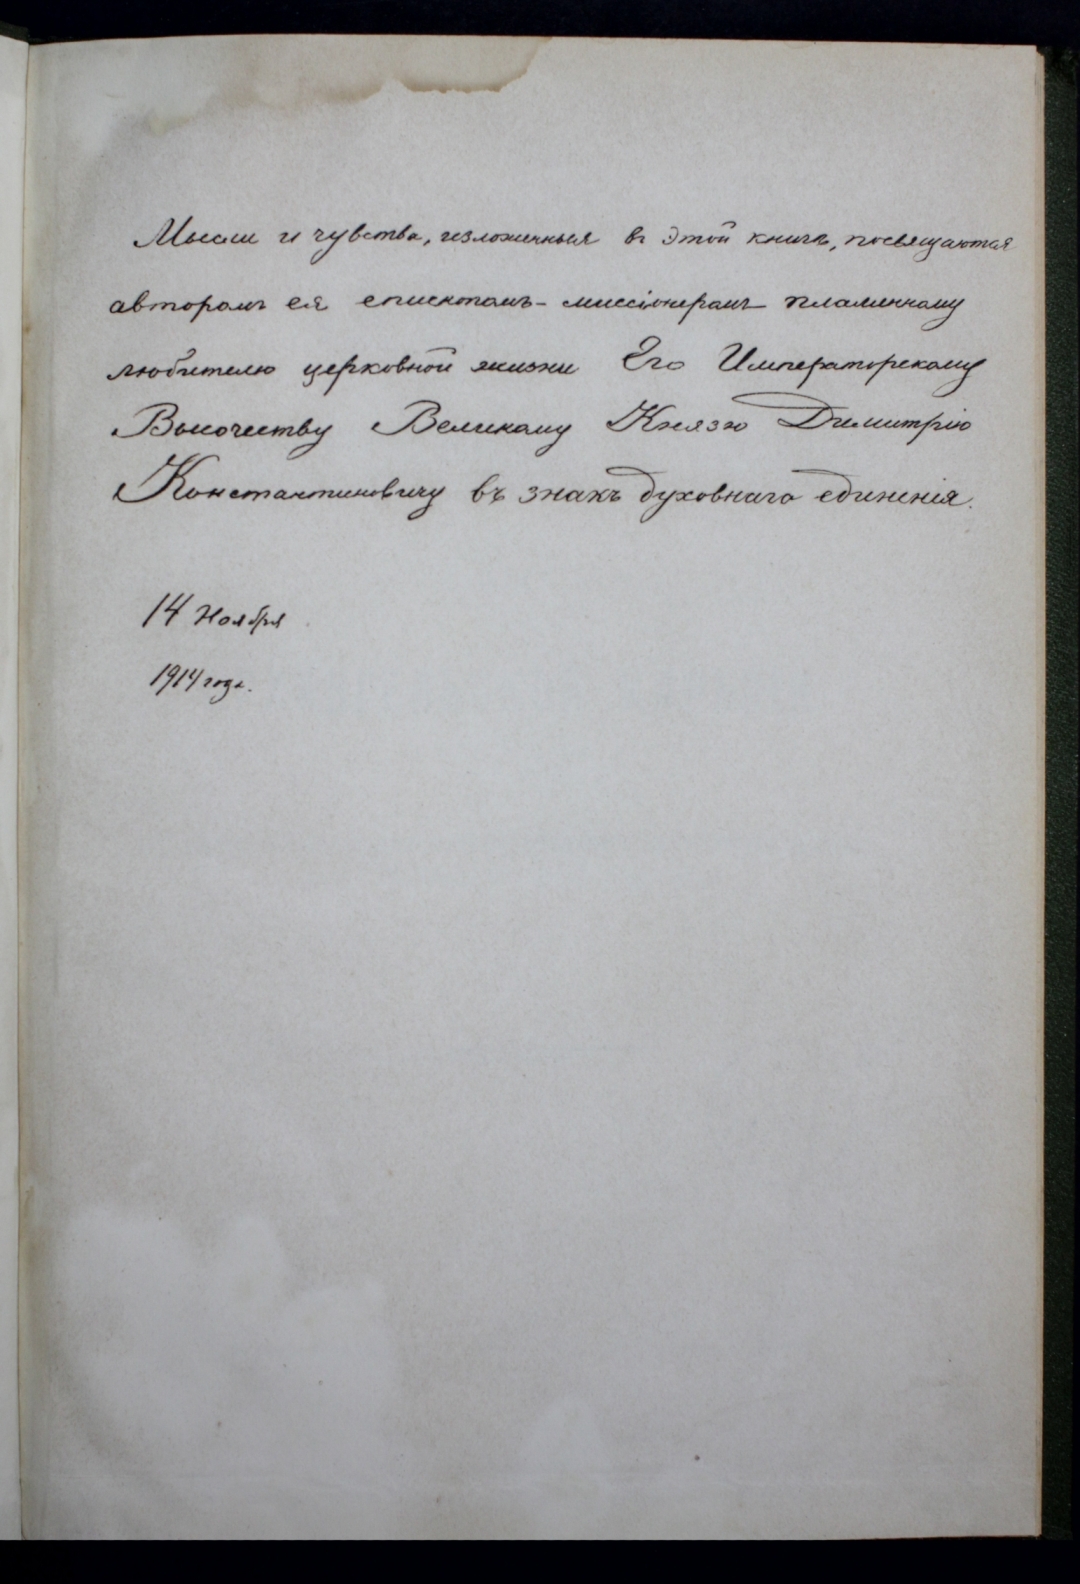 Мысли и чувства, изложенныя въ этой книгѣ, посвящаются
авторомъ ея епископомъ-миссіонеромъ пламенному
любителю церковной жизни Его Императорскому
Высочеству Великому Князю Димитрію
Константиновичу въ знакъ духовнаго единенія.
14 Ноября
1914 года.